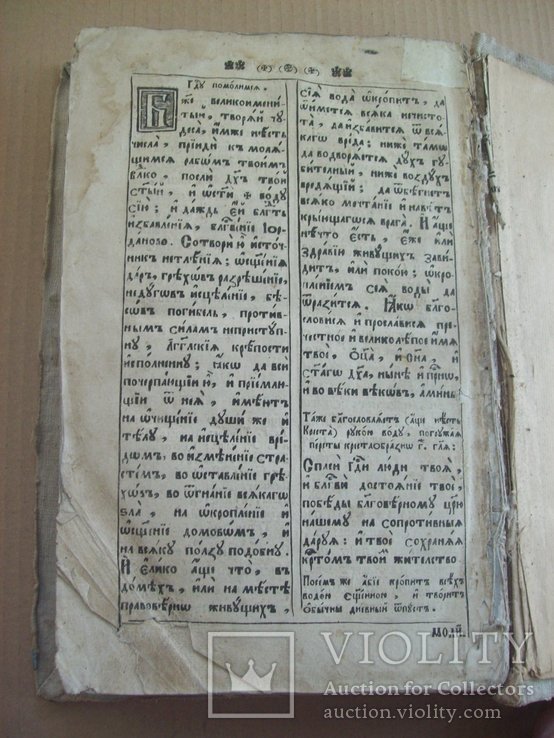 Гдꙋ помолимсѧ.
Бже великоимени-
тый, творѧй чꙋ-
деса, и҆мже нѣсть
числа, прїиди къ молѧ-
щимсѧ рабѡмъ твоимъ
влко, посли дхъ твой
стый, и ѡсти ✠ водꙋ
сїю; и даждь ей блгть
избавленїѧ, блгвнїе Іор-
даново. Сотвори ю источ-
никъ нетлѣнїѧ; ѡсщенїѧ
даръ, грѣхѡвъ разрѣшенїе,
недꙋгѡвъ исцѣленїе, бѣ-
сѡвъ погибель, против-
нымъ силамъ непристꙋп-
нꙋ, Агглскїѧ крѣпости
исполненꙋ; ꙗкѡ да вси
почерпающїи и, и прїемлю-
щїи ѿ неѧ, имѣютъ
на ѡчищенїе дꙋши же и
тѣлꙋ, на исцѣленїе вре-
дѡмъ, во измѣненїе стра-
стемъ, во ѡставленїе грѣ-
хѡвъ, во ѿгнанїе всѧкагѡ
ѕла, на ѡкропленїе и
ѡсщенїе домовѡмъ, и
на всѧкꙋ ползꙋ подобнꙋ.
И елико аще что, въ
домѣхъ, или на мѣстѣ
правовѣрнѡ живꙋщихъ,
сїѧ вода ѡкропитъ, да
ѿиметсѧ всѧка нечисто-
та, да избавитсѧ ѿ всѧ-
кагѡ вреда; ниже тамѡ
да водворѧетсѧ дꙋхъ гꙋ-
бителный, ниже воздꙋхъ
вредѧщїй; да ѿбѣгнетъ
всѧко мечтанїе и навѣтъ
крыющагѡсѧ врага. И аще
нѣчто есть, еже или
здравїю живꙋщихъ зави-
дитъ, или покою; ѡкро-
пленїемъ сеѧ воды да
ѿразитсѧ. Ꙗкѡ благо-
словисѧ и прослависѧ пре-
честное и великолѣпое имѧ
твое, Оца, и Сна, и
стагѡ Дха, нынѣ и приснѡ,
и во вѣки вѣкѡвъ, аминь
Таже благословлѧетъ (аще нѣсть
Креста) рꙋкою водꙋ, погрꙋжаѧ
персты крестаобразнѡ г. глѧ:
Спаси Гди люди твоѧ,
и блгви достоѧнїе твое,
побѣды благовѣрномꙋ црю
нашемꙋ на сопротивныѧ
дарꙋѧ: и твое сохранѧѧ
кртомъ твоим жителство
Посемъ же абїе кропитъ всѣхъ
водою сщенною, и творитъ
обычны дневный ѿпꙋстъ.
молй
VIOLITY
Auction for Collectors
auction.violity.com